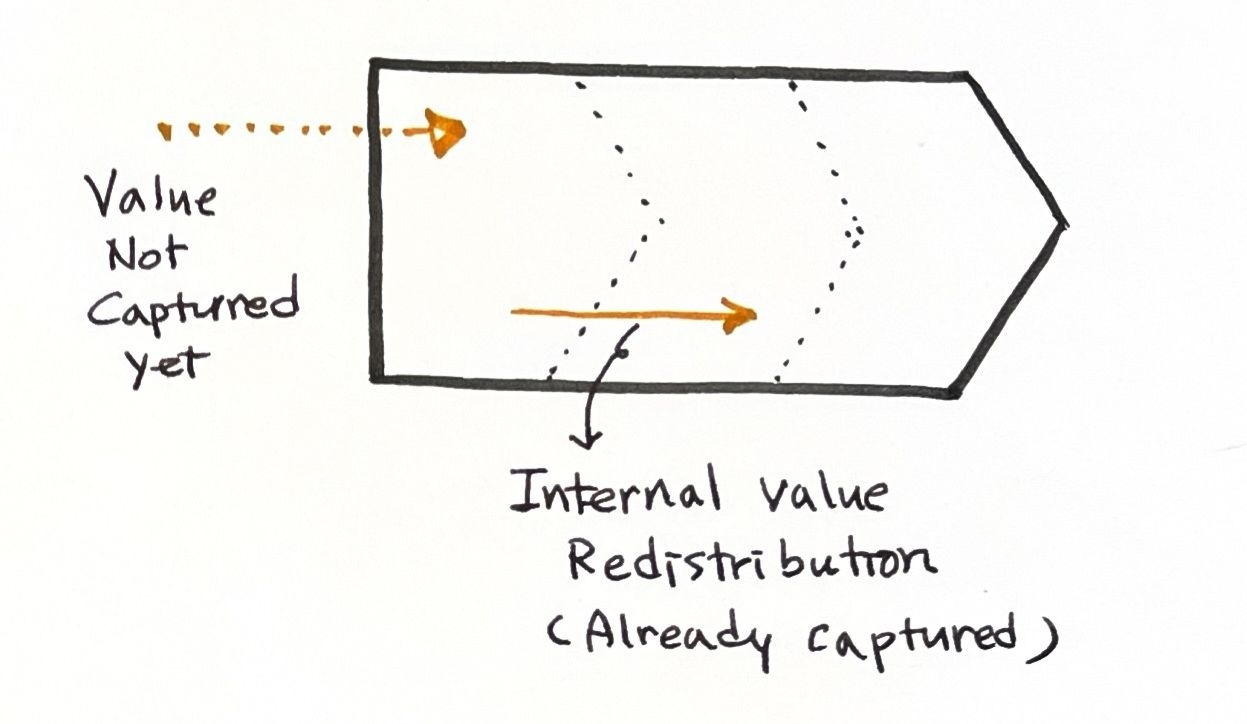 Value
Not
Capturred
yet
Internal value
Redistribution
(Already captured)